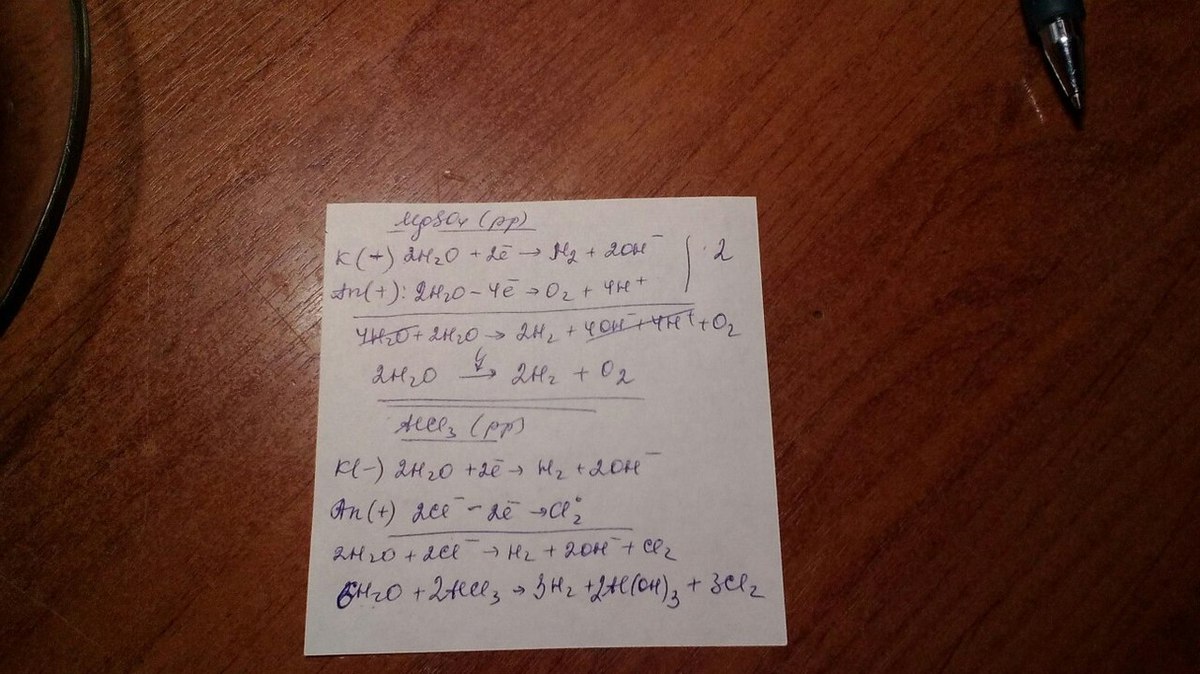 MgSO₄ (рр)
K(-) 2H₂O + 2ē → H₂ + 2OH⁻ | ·2
An(+): 2H₂O - 4ē → O₂ + 4H⁺
4H₂O + 2H₂O → 2H₂ + 4OH⁻ + 4H⁺ + O₂
2H₂O → 2H₂ + O₂
AlCl₃ (рр)
K(-) 2H₂O + 2ē → H₂ + 2OH⁻
An(+) 2Cl⁻ - 2ē → Cl₂⁰
2H₂O + 2Cl⁻ → H₂ + 2OH⁻ + Cl₂
6H₂O + 2AlCl₃ → 3H₂ + 2Al(OH)₃ + 3Cl₂